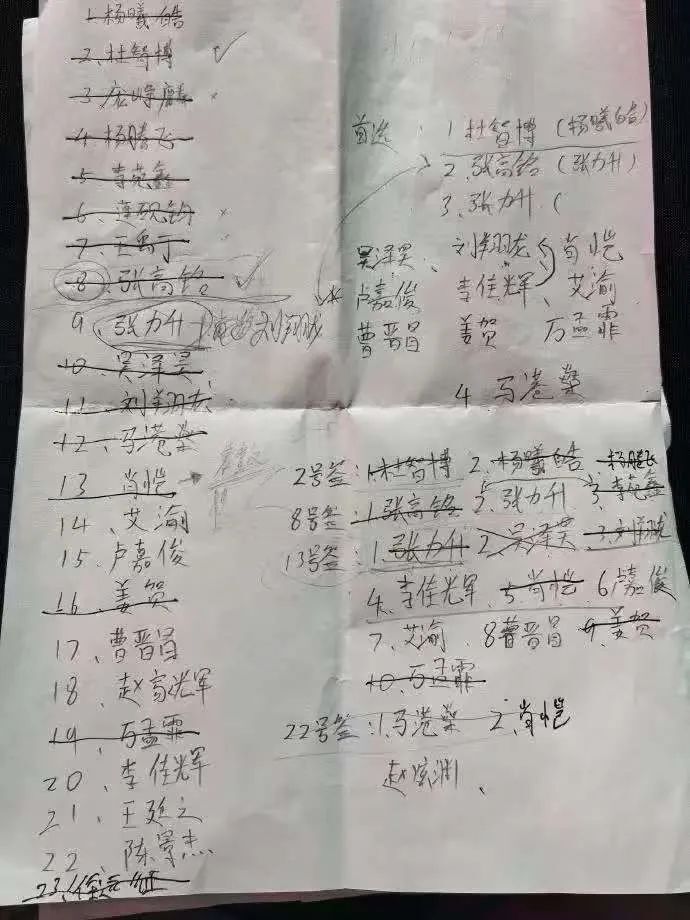 1 杨曦皓
2、杜智博
4 杨腾飞
5 李苑鑫
6、
7、王禹丁
8、张高铭
9、张力升 刘翔胧
10 吴泽昊
11、刘翔胧
12、马滟燊
13 肖恺
14、艾渝
15、卢嘉俊
16、姜贺
17、曹晋昌
18、赵家光军
19、万孟霏
20、李佳光辉
21、王廷之
22、陈景杰
23、
首选：1杜智博（杨曦皓）
2、张高铭（张力升）
3、张力升（
吴泽昊、刘翔胧 肖恺
卢嘉俊 李佳光辉、艾渝
曹晋昌 姜贺 万孟霏
4、马滟燊
2号签：1.杜智博 2、杨曦皓 杨腾飞
8号签：1.张高铭 2、张力升 3、李苑鑫
13号签：1、张力升 2、吴泽昊 3、刘翔胧
4、李佳光辉、5肖恺 6卢嘉俊
7、艾渝 8曹晋昌 9、姜贺
10、万孟霏
22号签：1、马滟燊 2、肖恺
赵家渊、